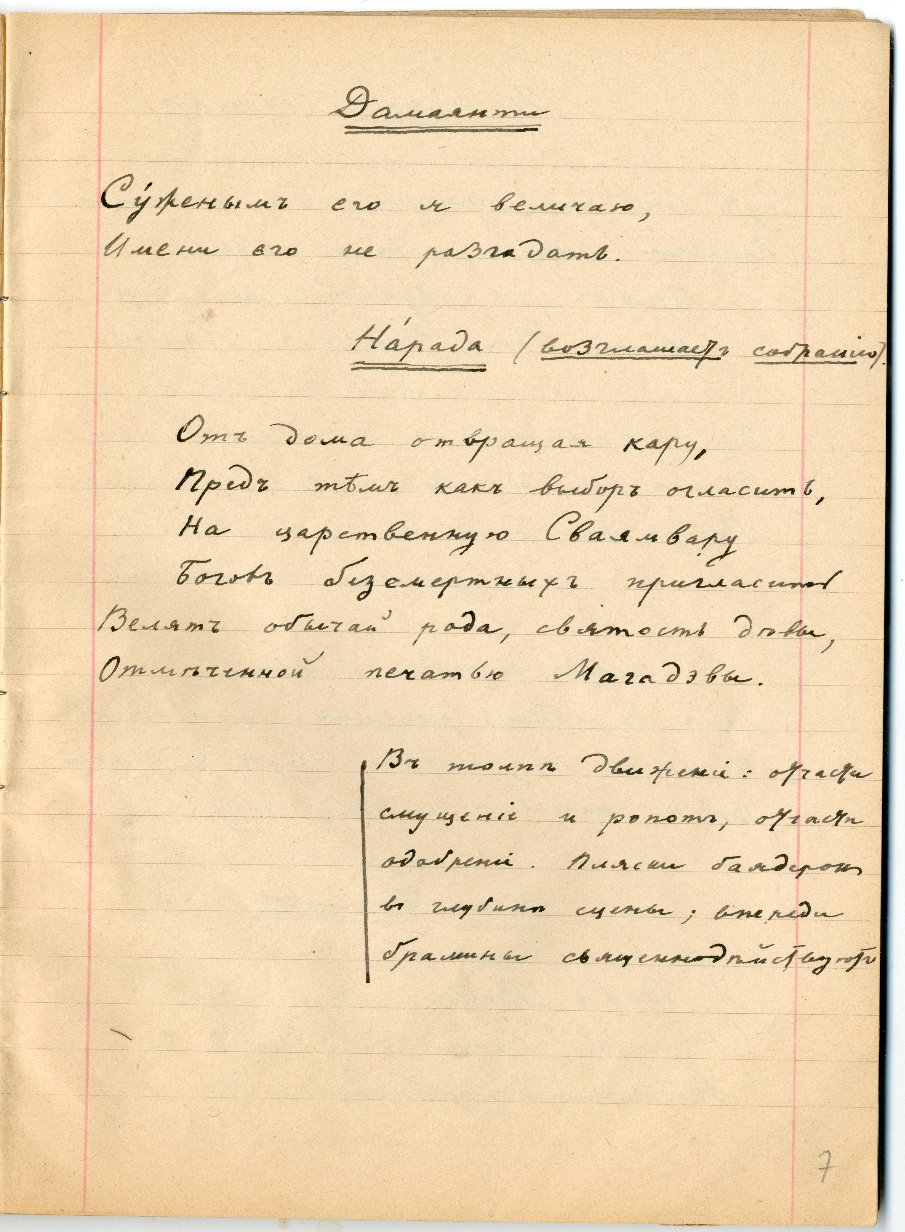 Дамаянти
Су́женымъ его я величаю,
Имени его не разгадать.
На́рада (возглашаетъ собранію).
Отъ дома отвращая кару,
Предъ тѣмъ какъ выборъ огласить,
На царственную Сваямвару
Боговъ безсмертныхъ пригласить
Велятъ обычай рода, святость дѣвы,
Отмѣченной печатью Магадэвы.
Въ толпѣ движеніе: отчасти
смущеніе и ропотъ, отчасти
одобреніе. Пляски баядерокъ
въ глубинѣ сцены; впереди
брамины священнодѣйствуютъ
7